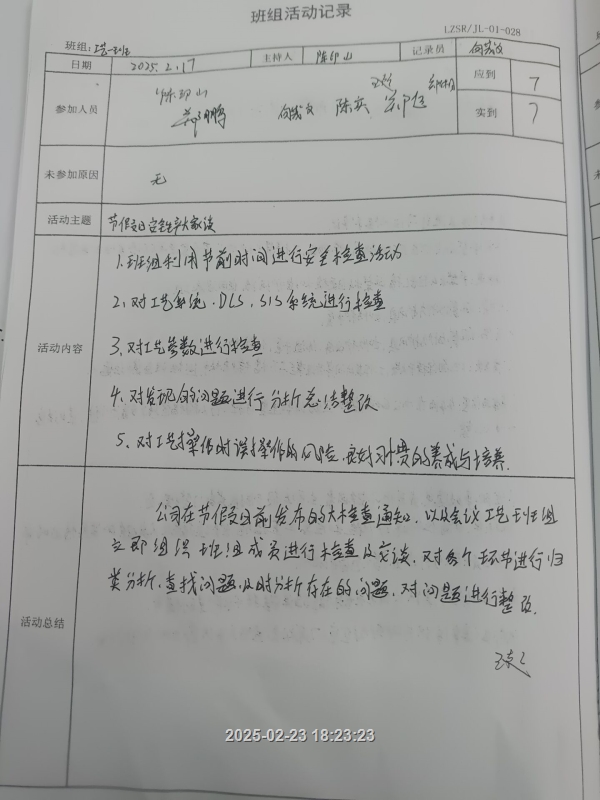 班组活动记录
LZSR/JL-01-028
班组:工艺一班
日期 2025.2.17 主持人 陈印山 记录员
应到 7
参加人员 陈印山
实到 7
未参加原因 无
活动主题 节假日安全生产大家谈
活动内容
1、班组利用节前时间进行安全检查活动
2、对工艺系统、DLS、SIS系统进行检查
3、对工艺参数进行检查
4、对发现的问题进行分析总结整改
5、对工艺操作时误操作的风险,良好习惯的养成与培养.
公司在节假日前发布的大检查通知,以及会议工艺班组
立即组织班组成员进行检查及交谈,对各个环节进行归
类分析,查找问题及时分析存在的问题,对问题进行整改.
活动总结
2025-02-23 18:23:23